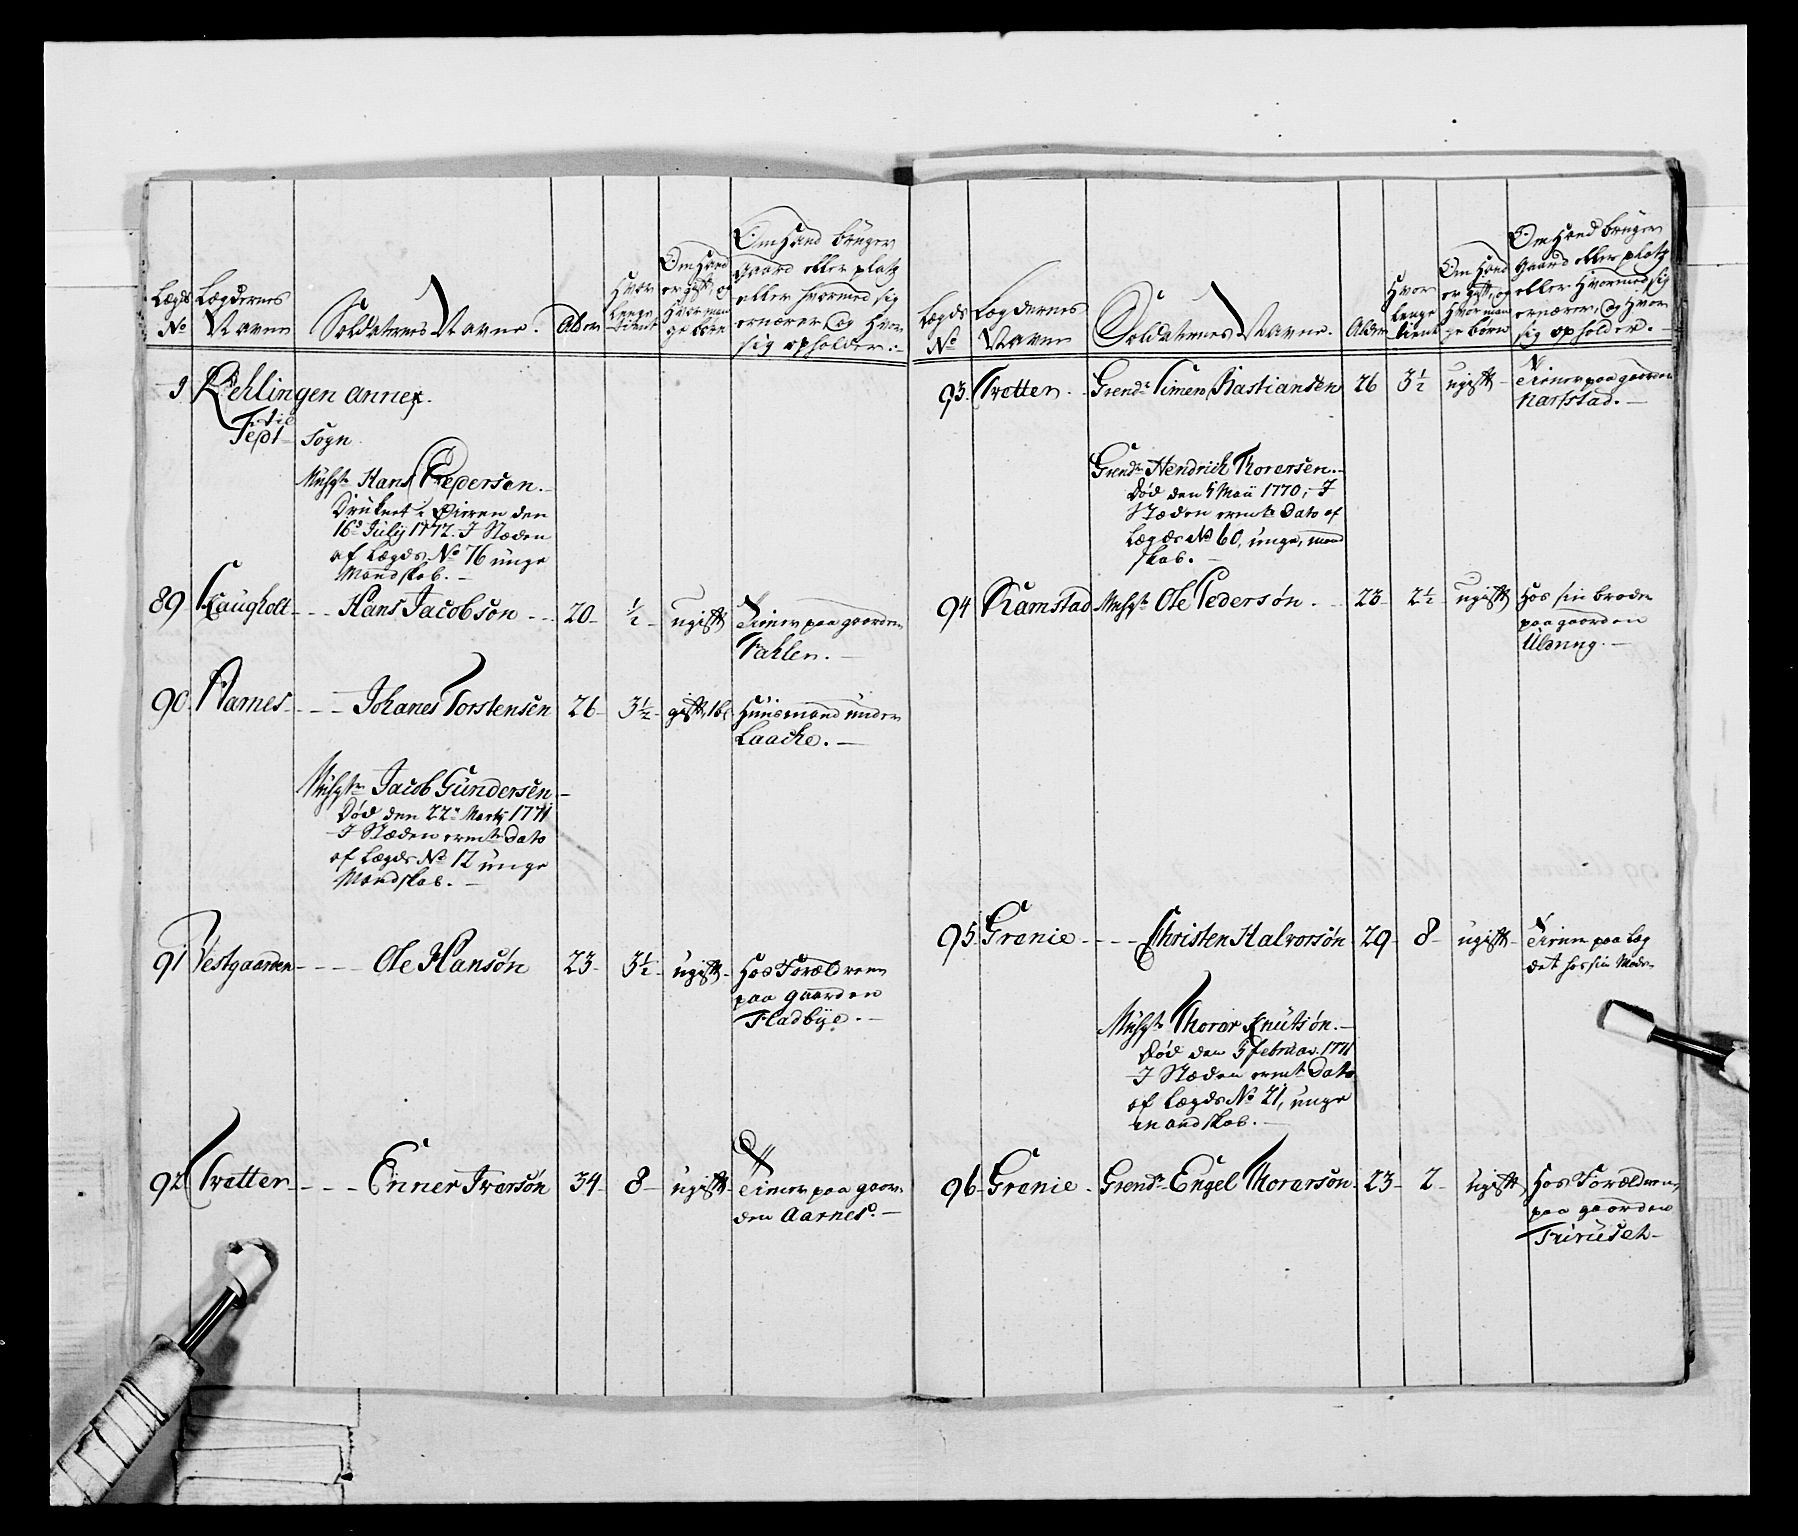 Lægds
No
Lægdernes
Navne
Soldaternes Navne.
Alder
Hvor
lenge
tient
Om Hand
er gift, og
Hvor man
ge børn
Om Hand bruger
gaard eller platz
eller hvormed sig
ernærer, og hvor
sig opholder.
9 Rehlingen annex.
til
Fedt Sogn
Musqt: Hans Pedersen.
Druknet i Øieren den
16d July 1772. I Stæden
af Lægds No 76 unge
Mandskab.
89 Haugholt - - Hans Jacobsøn - - 20 - ½ - ugift Tiener paa gaarden
Fahlen.
90 Aarnes - - - Johanes Torstensen 26 - 3½ - gift, 1 b: Huusmand under
Laache.
Musqtr Jacob Gundersen
Død den 22de Martj 1771
I Stæden ermt: Dato
af Lægds No 12 unge
Mandskab.
91 Vestgaarden - - - Ole Hansøn 23 - 3½ - ugift - Hos Forældrene
paa gaarden
Fladbye.
92 Tvetter - - - Enner Iversøn 34 - 8 - ugift Tiener paa gaar
den Aarnes.
Lægds
No
Lægdernes
Navne
Soldaternes Navne.
Alder
Hvor
lenge
tient
Om Hand
er gift, og
Hvor man
ge børn
Om Hand bruger
gaard eller platz
eller Hvormed sig
ernærer, og Hvor
sig opholder.
93. Tvetter. Grendr Simen Bastiansen 26 3½ ugift Tiener paa gaarden
Karstad.
Grendr Hendrich Thorersen.
Død den 5 Maii 1770, I
Stæden ermte Dato af
Lægds No 60, unge, mand
skab.
94 Ramstad Musqt: Ole Pedersøn. 23 2½ ugift Hos sin broder
paa gaarden
Uldring.
95. Grønie - - - Christen Halvorsøn 29 - 8 - ugift - Tiener paa Læg
det hos sin Moder
Musqt: Thorer Knutsøn.
Død den 5 Februar. 1771
I Stæden ermt: Dato
af Lægds No 21, unge
mandskab.
96 Grønie. Grendr Engel Thorersøn 23 - 2 - ugift Hos Forældrene,
paa gaarden